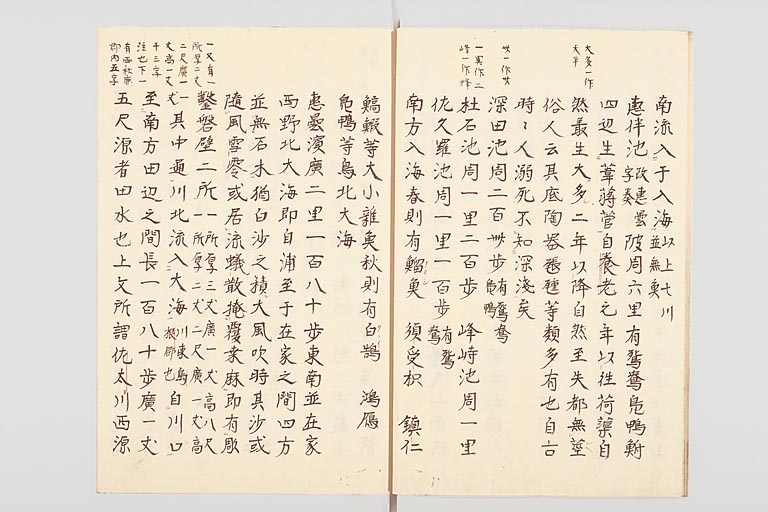 太多一作
太半
南流入于入海以上七川
並無魚
恵伴池改恵曇
字参陂周六里有鴛鴦鳬鴨鮒
四辺生葦蒋菅自養老元年以徃荷蕖自
然最生太多二年以降自然至失都無莖
俗人云其底陶器甕等類多有也自古
時〻人溺死不知深淺矣
卅一作廿
深田池周二百卅歩有鴛鴦
鳬鴨
一里作二
峰一作蜂
杜石池周一里二百歩　峰峙池周一里
佐久羅池周一里一百歩有鴛
鴦
南方入海春則有鯔魚　須受枳　鎮仁
鰝鰕等大小雜魚秋則有白鵠　鴻鴈
鳬鴨等鳥北大海
恵曇濱廣二里一百八十歩東南並在家
西野北大海即自浦至于在家之間四方
並無石木猶白沙之積大風吹時其沙或
隨風雪零或居流蟻散掩覆桒麻即有彫
一又有一
所厚二丈
二尺廣一
丈高一丈
十三字
鑿磐壁二所一所厚三丈廣一丈高八尺
一所厚二丈二尺廣一丈高
丈其中通川北流入大海川東島
根郡也自川口
注也下一
有西秋鹿
郡内五字
至南方田辺之間長一百八十歩廣一丈
五尺源者田水也上文所謂佐太川西源